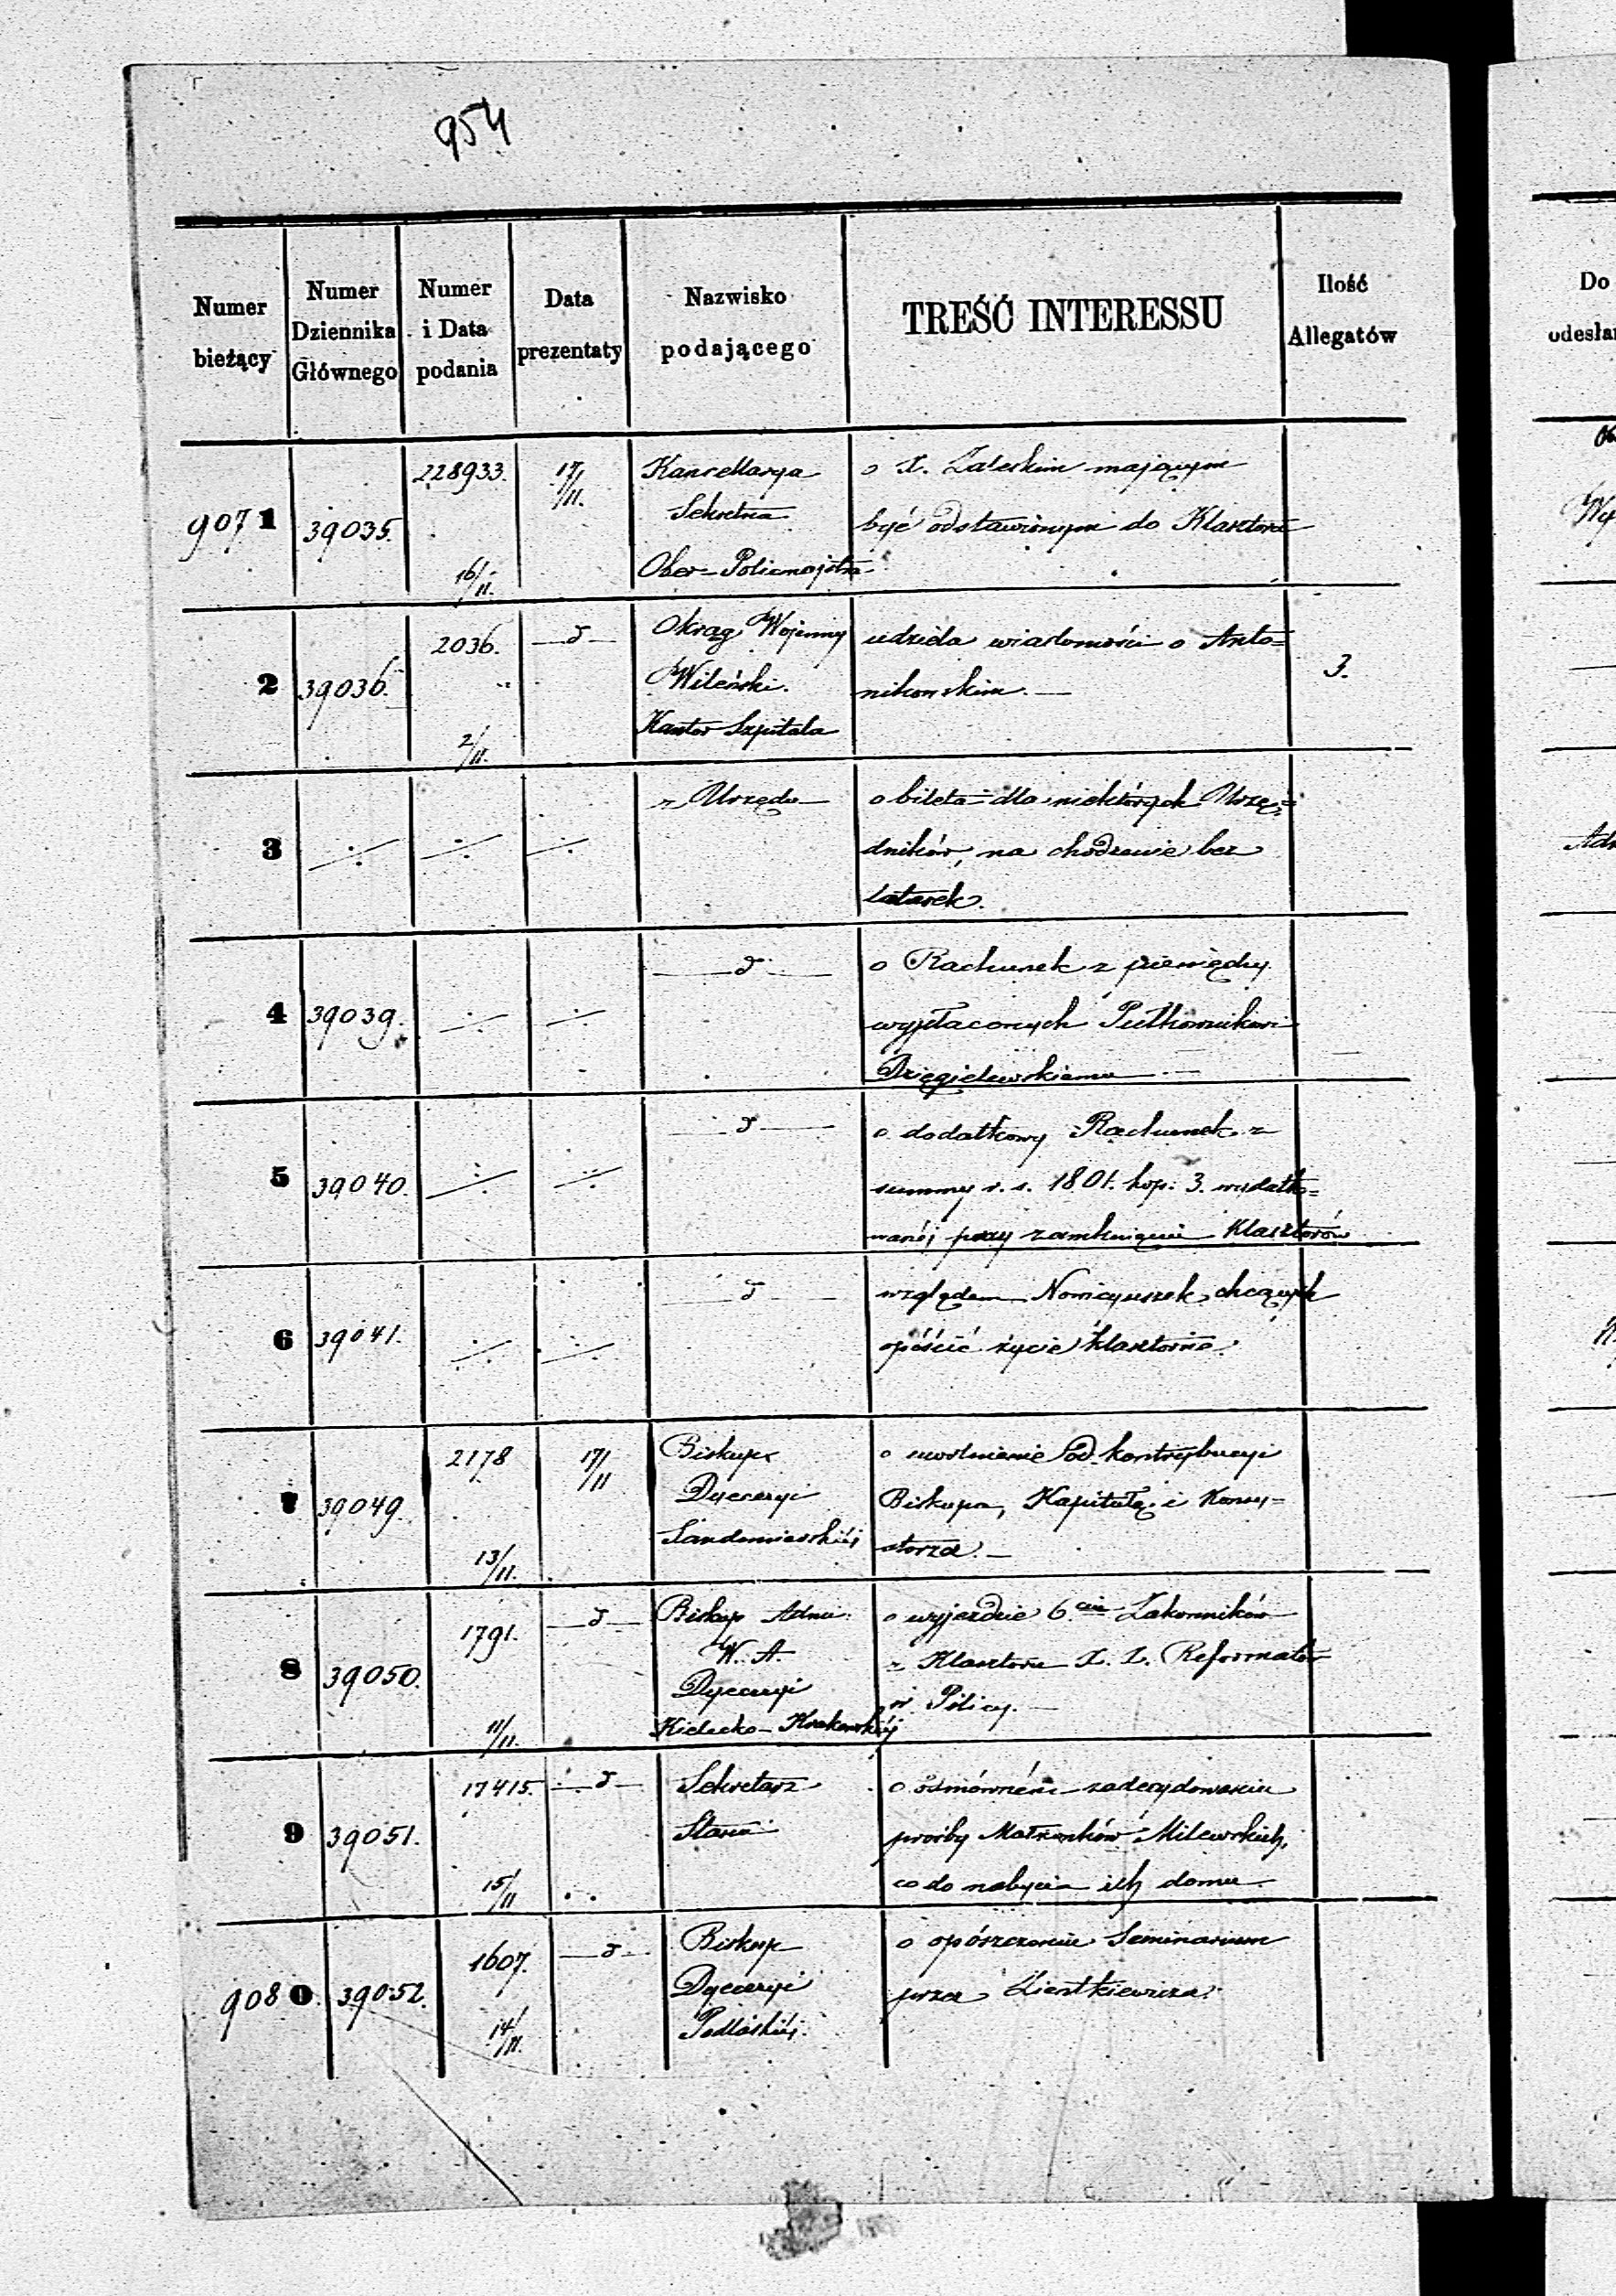 954
Numer bieżący
Numer Dziennika Głównego
Numer i Data podania
Data prezentaty
Nazwisko podającego
TREŚĆ INTERESSU
Ilość Allegatów
Do
odesła
9071
39035.
228933.
16/11.
17/11.
Kancellarya
Sekretna
Ober-Policmajstra
o X. Zaleskim mającym
być odstawionym do Klasztoru
2
39036.
2036.
2/11.
—d—
Okrąg Wojenny
Wileński.
Kantor Szpitala
udziela wiadomości o Anto=
nikowskim.—
3.
3
z Urzędu
o bileta dla niektórych Urzę=
dników, na chodzenie bez
latarek.
4
39039.
—d—
o Rachunek z pieniędzy
wypłaconych Pułkownikowi
Dzięgielewskiemu
5
39040.
—d—
o dodatkowy Rachunek z
summy r. s. 1801. kop: 3. wydatko=
wanéj przy zamknięciu Klasztorów
6
39041.
—d—
względem Nowicyuszek, chcących
opóścić życie klasztorne.
7
39049.
2178
13/11.
17/11
Biskup
Dyecezyi
Sandomierskiéj
o uwolnienie od kontrybucyi
Biskupa, Kapitułę i Konsy=
storza.—
8
39050.
1791.
11/11.
—d—
Biskup Admi:
W. A.
Dyecezyi
Kielecko-Krakowskiéj
o wyjezdzie 6.ciu Zakonników
z Klasztoru X. X. Reformatów
w Pilicy.—
9
39051.
17415.
15/11
—d—
Sekretarz
Stanu
o odmówném zadecydowaniu
prośby Małżonków Milewskich,
co do nabycia ich domu.
9080.
39052.
1607.
14/11.
—d—
Biskup
Dyecezyi
Podlaskiéj.
o opószczeniu Seminarium
przez